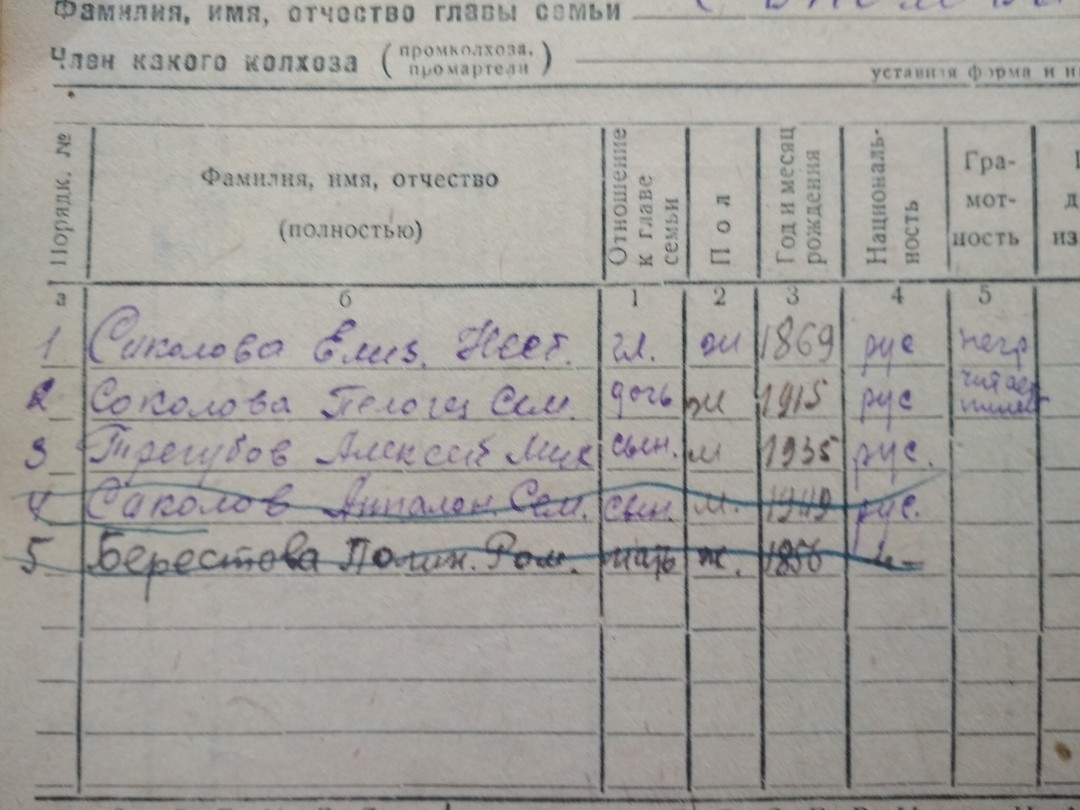 Фамилия, имя, отчество главы семьи
Член какого колхоза (промколхоза, промартели)
уставная форма и
Порядк. № Фамилия, имя, отчество (полностью) Отношение к главе семьи Пол Год и месяц рождения Националь-ность Гра-мот-ность
а б 1 2 3 4 5
1 Саколова Елиз. гл. ж 1869 рус негр
2 Соколова Сем. дочь ж 1915 рус читает пишет
3 Трегубов Алексей Мих сын. м 1935 рус.
4 Саколов Сем. сын. м. рус.
5 Берестова Полин. Ром. мать ж. 1856